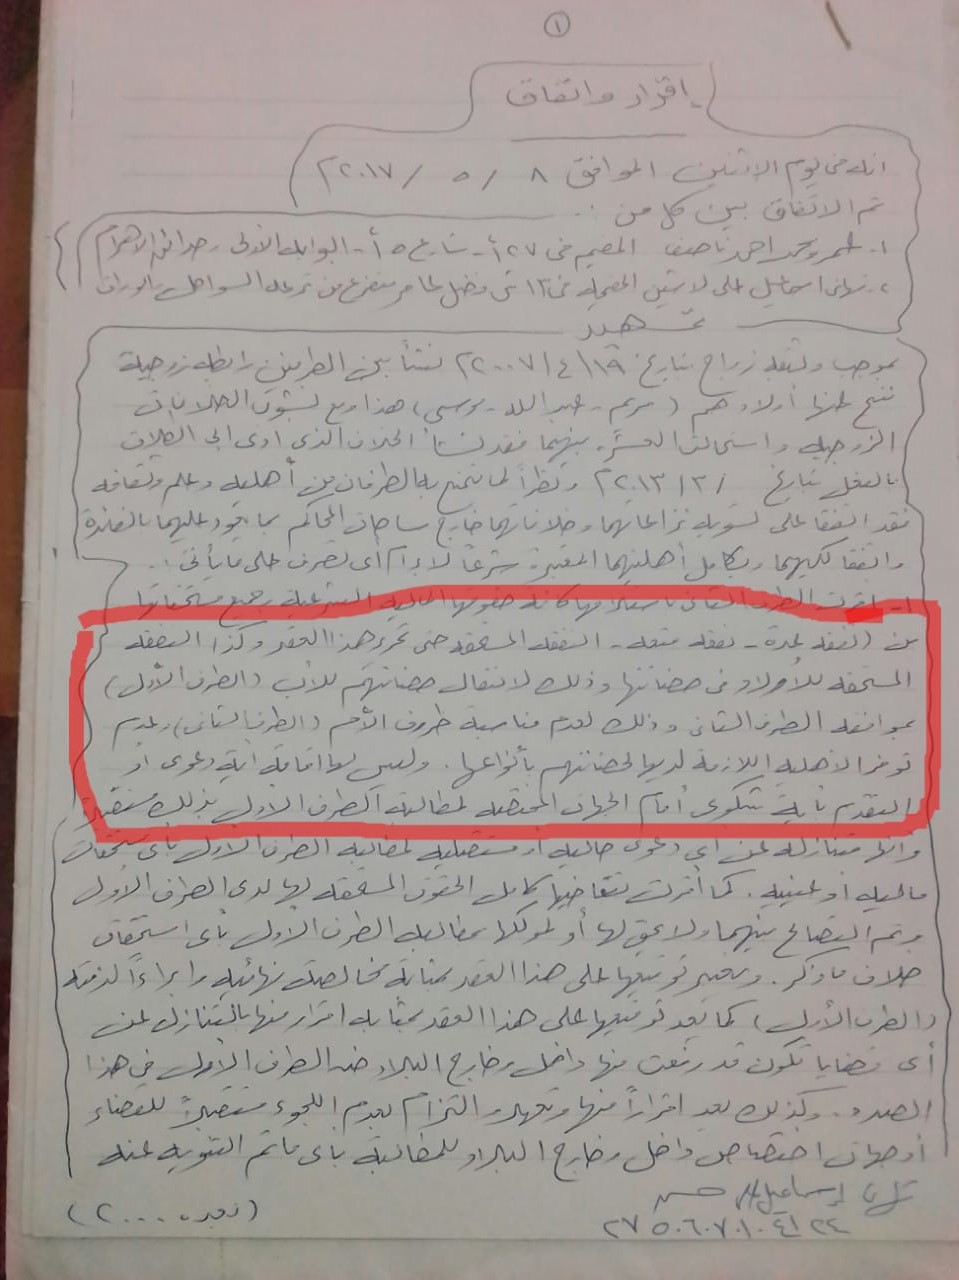 ١
إقرار واتفاق
انه فى يوم الاثنين الموافق ٨ / ٥ / ٢٠١٧
تم الاتفاق بين كل من :
١- عمرو محمد احمد ناصف المقيم فى ٢٧ أ - شارع ٥ أ - البوابة الأولى - حدائق الاهرام
٢- تهانى اسماعيل على لاشين المقيمة فى ١٣ ش فضل عامر متفرع من ترعة السواحل - الوراق
تمهيد
بموجب وثيقة زواج بتاريخ ١٩/ ٤ / ٢٠٠٧ نشأ بين الطرفين رابطة زوجية
نتج عنها أولادهم (مريم - عبد الله - موسى) هذا ومع نشوب الخلافات
الزوجية واستحالت العشرة بينهما فقد نشأ الخلاف الذى ادى الى الطلاق
بالفعل بتاريخ / ٣ / ٢٠١٣ ونظراً لما تتمتع به الطرفان من أهلية وعلم وثقافة
فقد اتفقا على تسوية نزاعاتهما وخلافاتهما خارج ساحات المحاكم بما يعود عليهما بالفائدة
واتفقا كليهما وبكامل أهليتهما المعتبرة شرعاً لابرام أى تصرف على ما يأتى :
١- اقرت الطرف الثانى باستلامها كافة حقوقها المالية الشرعية وجميع مستحقاتها
من (نفقة عدة - نفقة متعة - النفقة المستحقة حتى تحرير هذا العقد وكذا النفقة
المستحقة للأولاد فى حضانتها وذلك لانتقال حضانتهم للأب (الطرف الأول)
بموافقة الطرف الثانى وذلك لعدم مناسبة ظروف الأم (الطرف الثانى) وعدم
توفر الأهلية اللازمة لديها لحضانتهم بأنواعها. وليس لها اقامة أية دعوى أو
التقدم بأية شكوى أمام الجهات المختصة لمطالبة الطرف الأول بذلك مستقبلاً
وانها متنازلة عن أى دعوى حالية أو مستقبلية لمطالبة الطرف الأول بأى مستحقات
مالية أو عينية. كما أقرت بتقاضيها كامل الحقوق المستحقة لها لدى الطرف الأول
وتم التصالح بينهما ولا يحق لها أو لموكلها بمطالبة الطرف الأول بأى استحقاق
خلاف ما ذكر. ويعتبر توقيعها على هذا العقد بمثابة مخالصة نهائية وابراءاً لذمة
(الطرف الأول) كما يعد توقيعها على هذا العقد بمثابة اقرار منها بالتنازل عن
أى قضايا تكون قد رفعت منها داخل وخارج البلاد ضد الطرف الأول فى هذا
الصدد. وكذلك يعد اقراراً منها وتعهد والتزام بعدم اللجوء مستقبلاً للقضاء
أو جهات اختصاص داخل وخارج البلاد للمطالبة بأى ما تم التنويه عنه
تهانى إسماعيل على
٢٧٥٠٦٠٧٠١٠٤١٢٤
(بعده ... ٢)